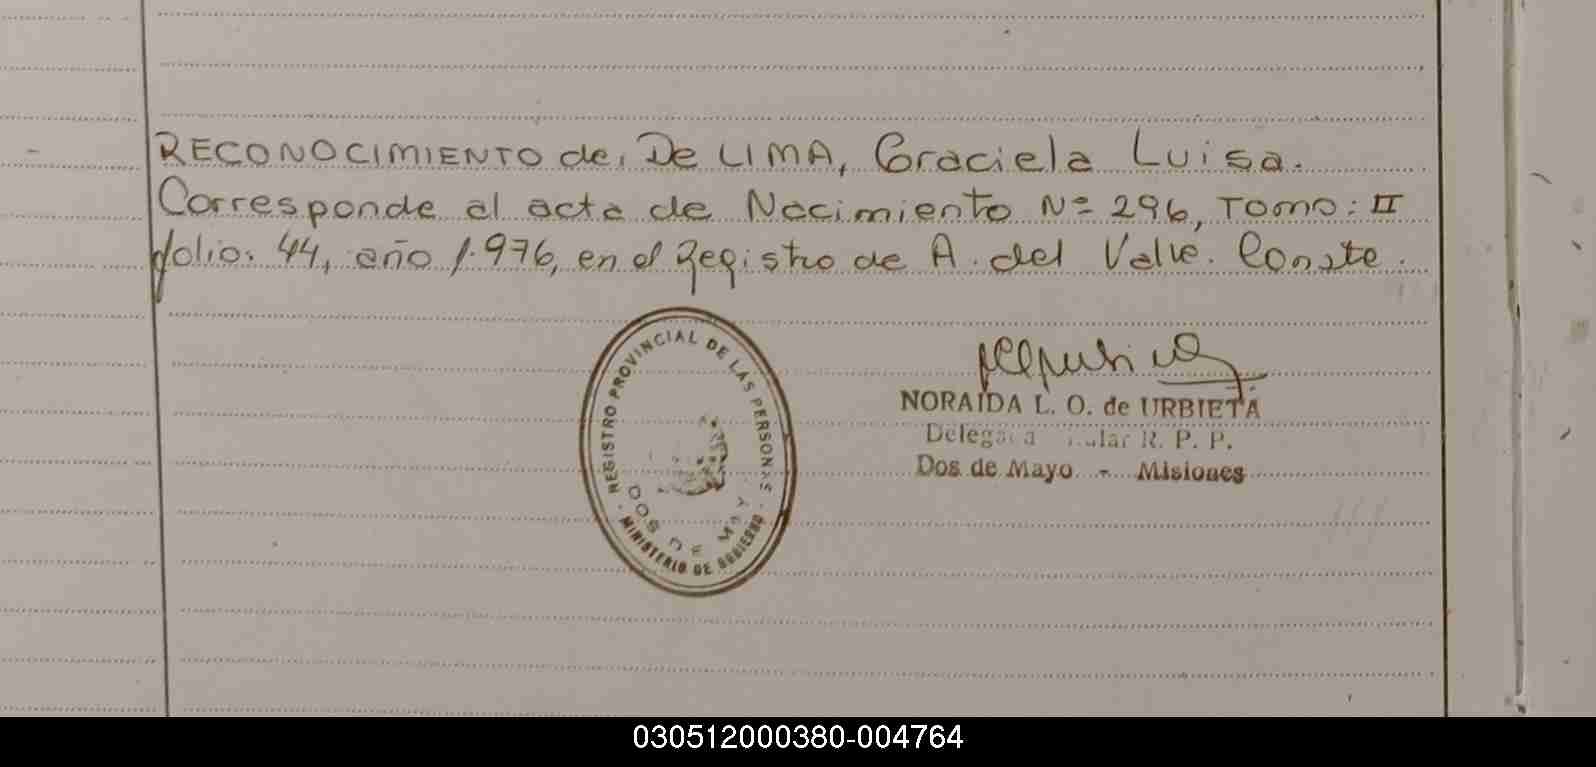 RECONOCIMIENTO de, De LIMA, Graciela Luisa.
Corresponde al acta de Nacimiento Nº 296, Tomo: II
folio: 44, año 1.976, en el Registro de A. del Valle. Conste.
REGISTRO PROVINCIAL DE LAS PERSONAS
DOS DE MAYO
- MINISTERIO DE GOBIERNO -
NORAIDA L. O. de URBIETA
R. P. P.
Dos de Mayo - Misiones
030512000380-004764